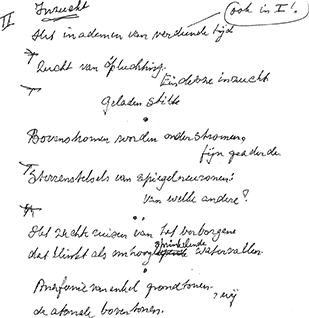 II Inzucht
ook in I!
Het inademen van verdunde tijd
Zucht van opluchting.
Eindeloze inzucht
Geladen stilte
Bovenstromen worden onderstromen,
fijn geaderde
Sterrenstelsels van spiegelneuronen:
van welke andere?
Het zachte ruisen van het verborgene
dat klinkt als omhoog sprinkelende watervallen.
Anafonie van enkel grondtonen,
de atonale boventonen.